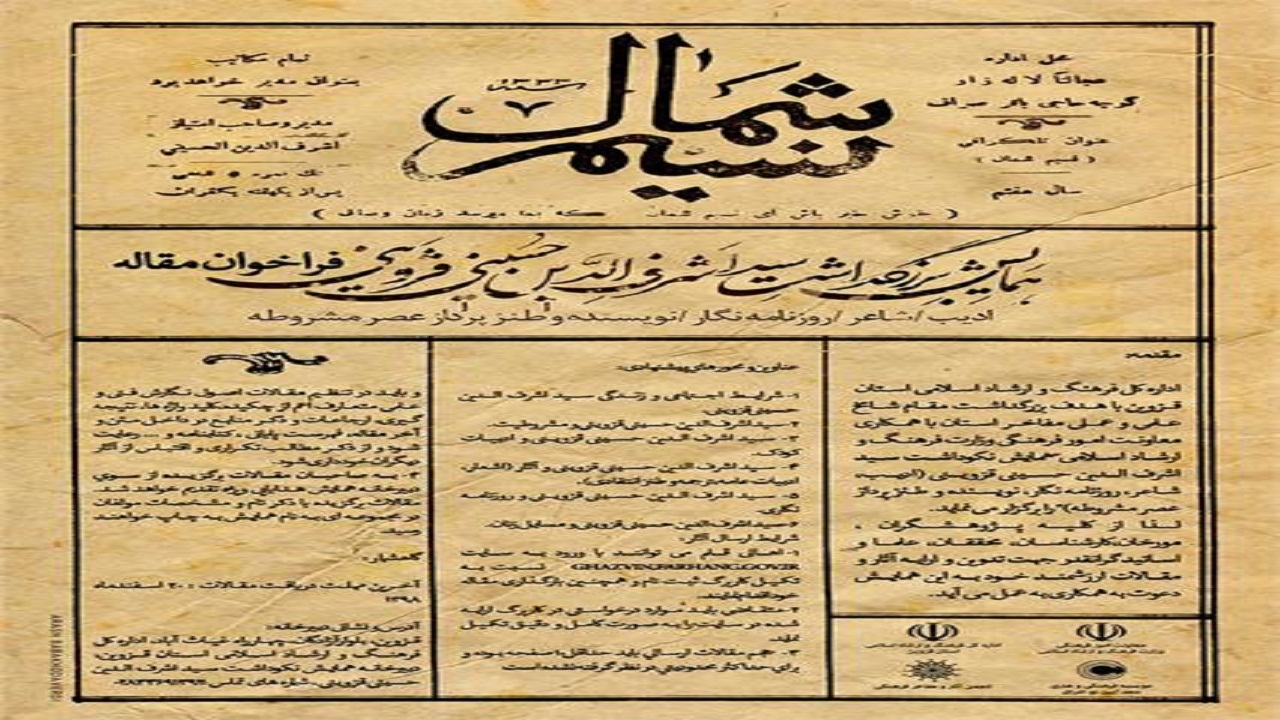 محل اداره
عجالتاً لاله زار
کوچه حاجی باقر صراف
عنوان تلگرافی
( نسیم شمال )
سال هفتم
نسیم شمال
۱۳۳۳
۷
تمام مکاتیب
بعنوان مدیر خواهد بود
مدیر و صاحب امتیاز
اشرف الدین الحسینی
تک نمره
پس از یکهفته یکقران
( خوش خبر باش ای نسیم شمال که بما میرسد زمان وصال )
همایش بزرگداشت سید اشرف الدین حسینی قزوینی فراخوان مقاله
ادیب/شاعر/روزنامه نگار/نویسنده و طنز پرداز عصر مشروطه
مقدمه:
اداره کل فرهنگ و ارشاد اسلامی استان
قزوین با هدف بزرگداشت مقام شامخ
علمی و عملی مفاخر استان با همکاری
معاونت امور فرهنگی وزارت فرهنگ و
ارشاد اسلامی همایش نکوداشت سید
اشرف الدین حسینی قزوینی (ادیب،
شاعر، روزنامه نگار، نویسنده و طنز پرداز
عصر مشروطه) را برگزار می نماید.
لذا از کلیه پژوهشگران ،
مورخان، کارشناسان، محققان، علما و
اساتید گرانقدر جهت تدوین و ارایه آثار و
مقالات ارزشمند خود به این همایش
دعوت به همکاری به عمل می آید.
عناوین و محورهای پیشنهادی:
۱- شرایط اجتماعی و زندگی سید اشرف الدین
حسینی قزوینی.
۲- سید اشرف الدین حسینی قزوینی و مشروطیت.
۳- سید اشرف الدین حسینی قزوینی و ادبیات
کودک.
۴- سید اشرف الدین حسینی قزوینی و آثار (اشعار،
ادبیات عامه، ترجمه و طنز انتقادی).
۵- سید اشرف الدین حسینی قزوینی و روزنامه
نگاری.
۶- سید اشرف الدین حسینی قزوینی و مسایل زنان.
شرایط ارسال آثار:
۱- اهالی قلم می توانند با ورود به سایت
GHAZVIN.FARHANG.GOV.IR نسبت به
تکمیل کاربرگ ثبت نام و همچنین بارگذاری مقاله
خود اقدام نمایند.
۲- متقاضی باید موارد درخواستی در کاربرگ ارایه
شده در سایت را به صورت کامل و دقیق تکمیل
نماید.
۳- حجم مقالات ارسالی باید حداقل ۱۰ صفحه بوده و
برای حداکثر محدودیتی در نظر گرفته نشده است
و باید در تنظیم مقالات اصول نگارش فنی و
علمی متعارف اعم از چکیده، کلید واژه ها، نتیجه
گیری، ارجاعات و ذکر منابع در داخل متن و
آخر مقاله، فهرست پایانی ، کتابنامه و ... رعایت
شود و از ذکر مطالب تکراری و اقتباس از آثار
دیگران خودداری شود.
۴- به صاحبان مقالات برگزیده از سوی
دبیرخانه همایش هدایایی ویژه تقدیم خواهد شد.
مقالات برگزیده با ذکر نام و مشخصات مولفان
در مجموعه ای به نام همایش به چاپ خواهند
رسید.
گاهشمار:
آخرین مهلت دریافت مقالات : ۲۰ اسفندماه
۱۳۹۸
آدرس و نشانی دبیرخانه:
قزوین، بلوار آزادگان، چهارراه غیاث آباد، اداره کل
فرهنگ و ارشاد اسلامی استان قزوین،
دبیرخانه همایش نکوداشت سید اشرف الدین
حسینی قزوینی. شماره های تماس